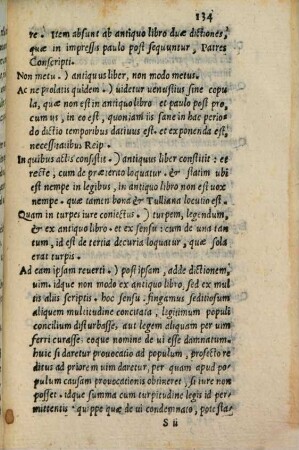 134
re. Item absunt ab antiquo libro duæ dictiones,
quæ in impressis paulo post sequuntur, Patres
Conscripti.
Non metu.) antiquus liber, non modo metus.
Ac ne prolatis quidem.) uidetur uenustius sine copu
la, quæ non est in antiquo libro et paulo post pro,
cum us, in eo est, quoniam iis sane in hac perio
do dictio temporibus datiuus est. et exponenda est,
necessitatibus Reip.
In quibus actis consistit.) antiquus liber constitit: et
recte, cum de præterito loquatur. & statim ubi
est nempe in legibus, in antiquo libro non est uox
nempe. quæ tamen bona & Tulliana locutio est.
Quam in turpes iure coniectus.) turpem, legendum,
& ex antiquo libro. et ex sensu: cum de una tan
tum, id est de tertia decuria loquatur, quæ sola
erat turpis.
Ad eam ipsam reuerti.) post ipsam, adde dictionem,
uim. idque non modo ex antiquo libro, sed ex mul
tis aliis scriptis. hoc sensu. fingamus seditiosum
aliquem multitudine concitata, legitimum populi
concilium disturbasse. aut legem aliquam per uim
ferri curasse: eoque nomine de ui esse damnatum.
huic si daretur prouocatio ad populum, profecto re
ditus ad priorem uim daretur, per quam apud po
pulum causam prouocationis obtineret, si iure non
posset. idque summa cum turpitudine legis id per
mittentis. quippe quæ de ui condemnato, potesta
S ii